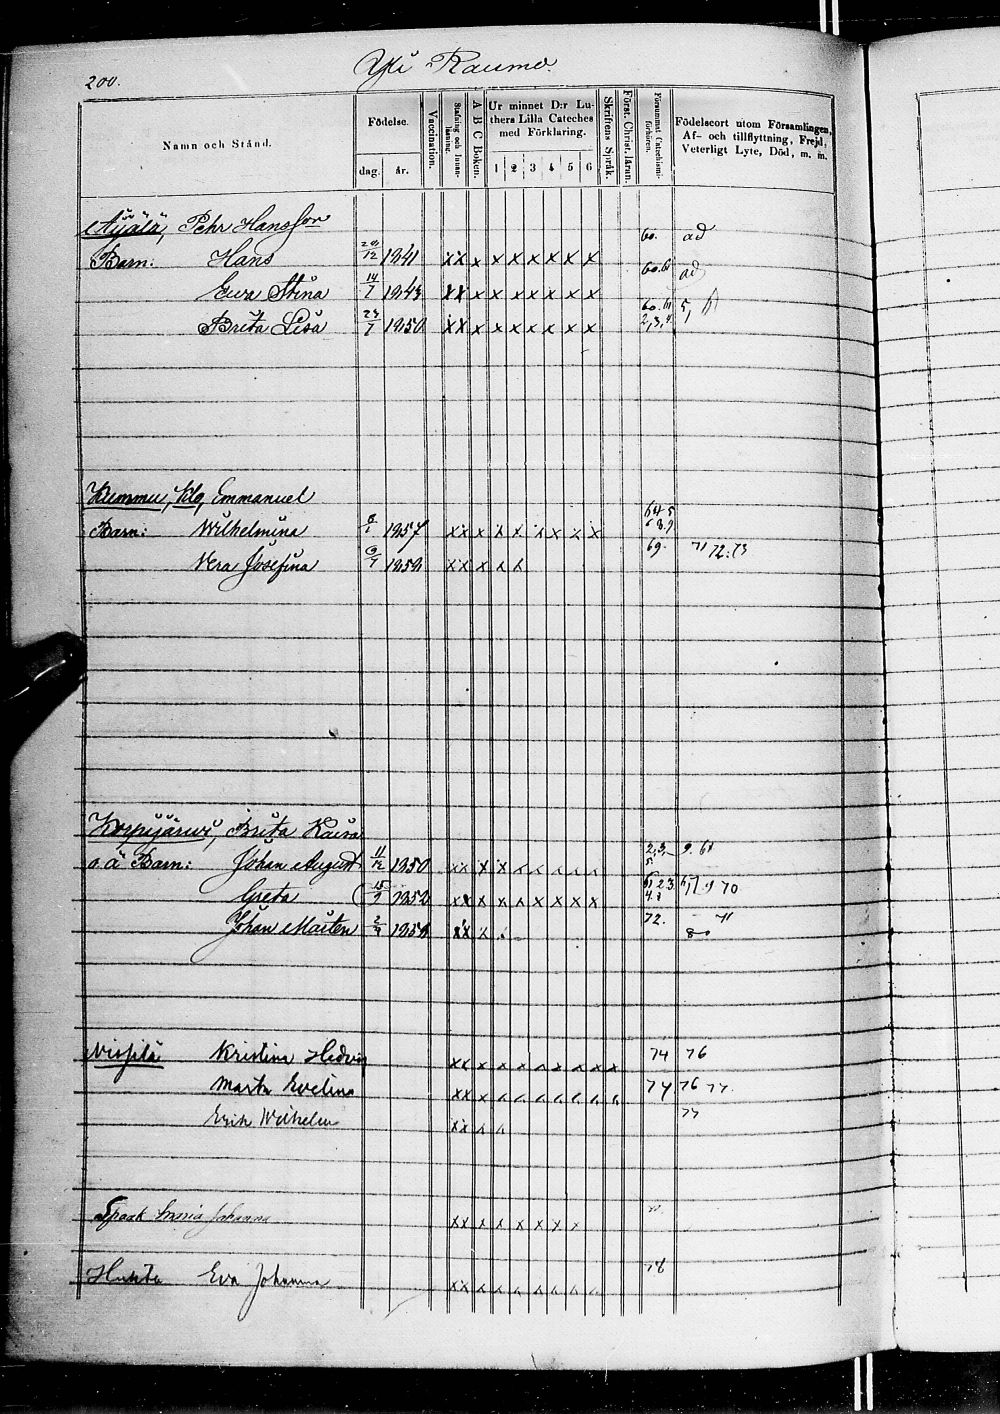 200.
Yli Raumo.
Namn och Stånd.
Födelse.
dag.
år.
Vaccination.
Stafning och Innan-läsning.
A B C Boken.
Ur minnet D:r Lu-
thers Lilla Cateches
med Förklaring.
1 2 3 4 5 6
Skriftens Språk.
Först. Christ. läran.
Försummat Catechismi-förhören.
Födelseort utom Församlingen,
Af- och tillflyttning, Frejd,
Veterligt Lyte, Död, m. m.
Äijälä, Pehr Hansson
Barn: Hans 1841 x x x x x x x x x 60. ad
Eva Stina 14/7 1843 x x x x x x x x x 60.61 ad
Brita Lisa 23/7 1850 x x x x x x x x x
Kummu, Klo, Emmanuel
Barn: Wilhelmina 1857 x x x x x x x x x
Vera Josefina 1858 x x x x x 69. 71 72.73
Korpijärvi, Brita Kaisa
o. ä Barn: Johan August 11/12 1850 x x x x x x x x x
Greta 15/9 1852 x x x x x x x x x
Johan Mårten 1856 x x x x 72. 71
80
Nissilä Kristina Hedvig x x x x x x x x x x 74 76
Marta Evelina x x x x x x x x x x 74 76 77.
Erik Wilhelm x x x x 77
Spaak Maria Johanna x x x x x x x x
Huhta Eva Johanna x x x x x x x x x 78